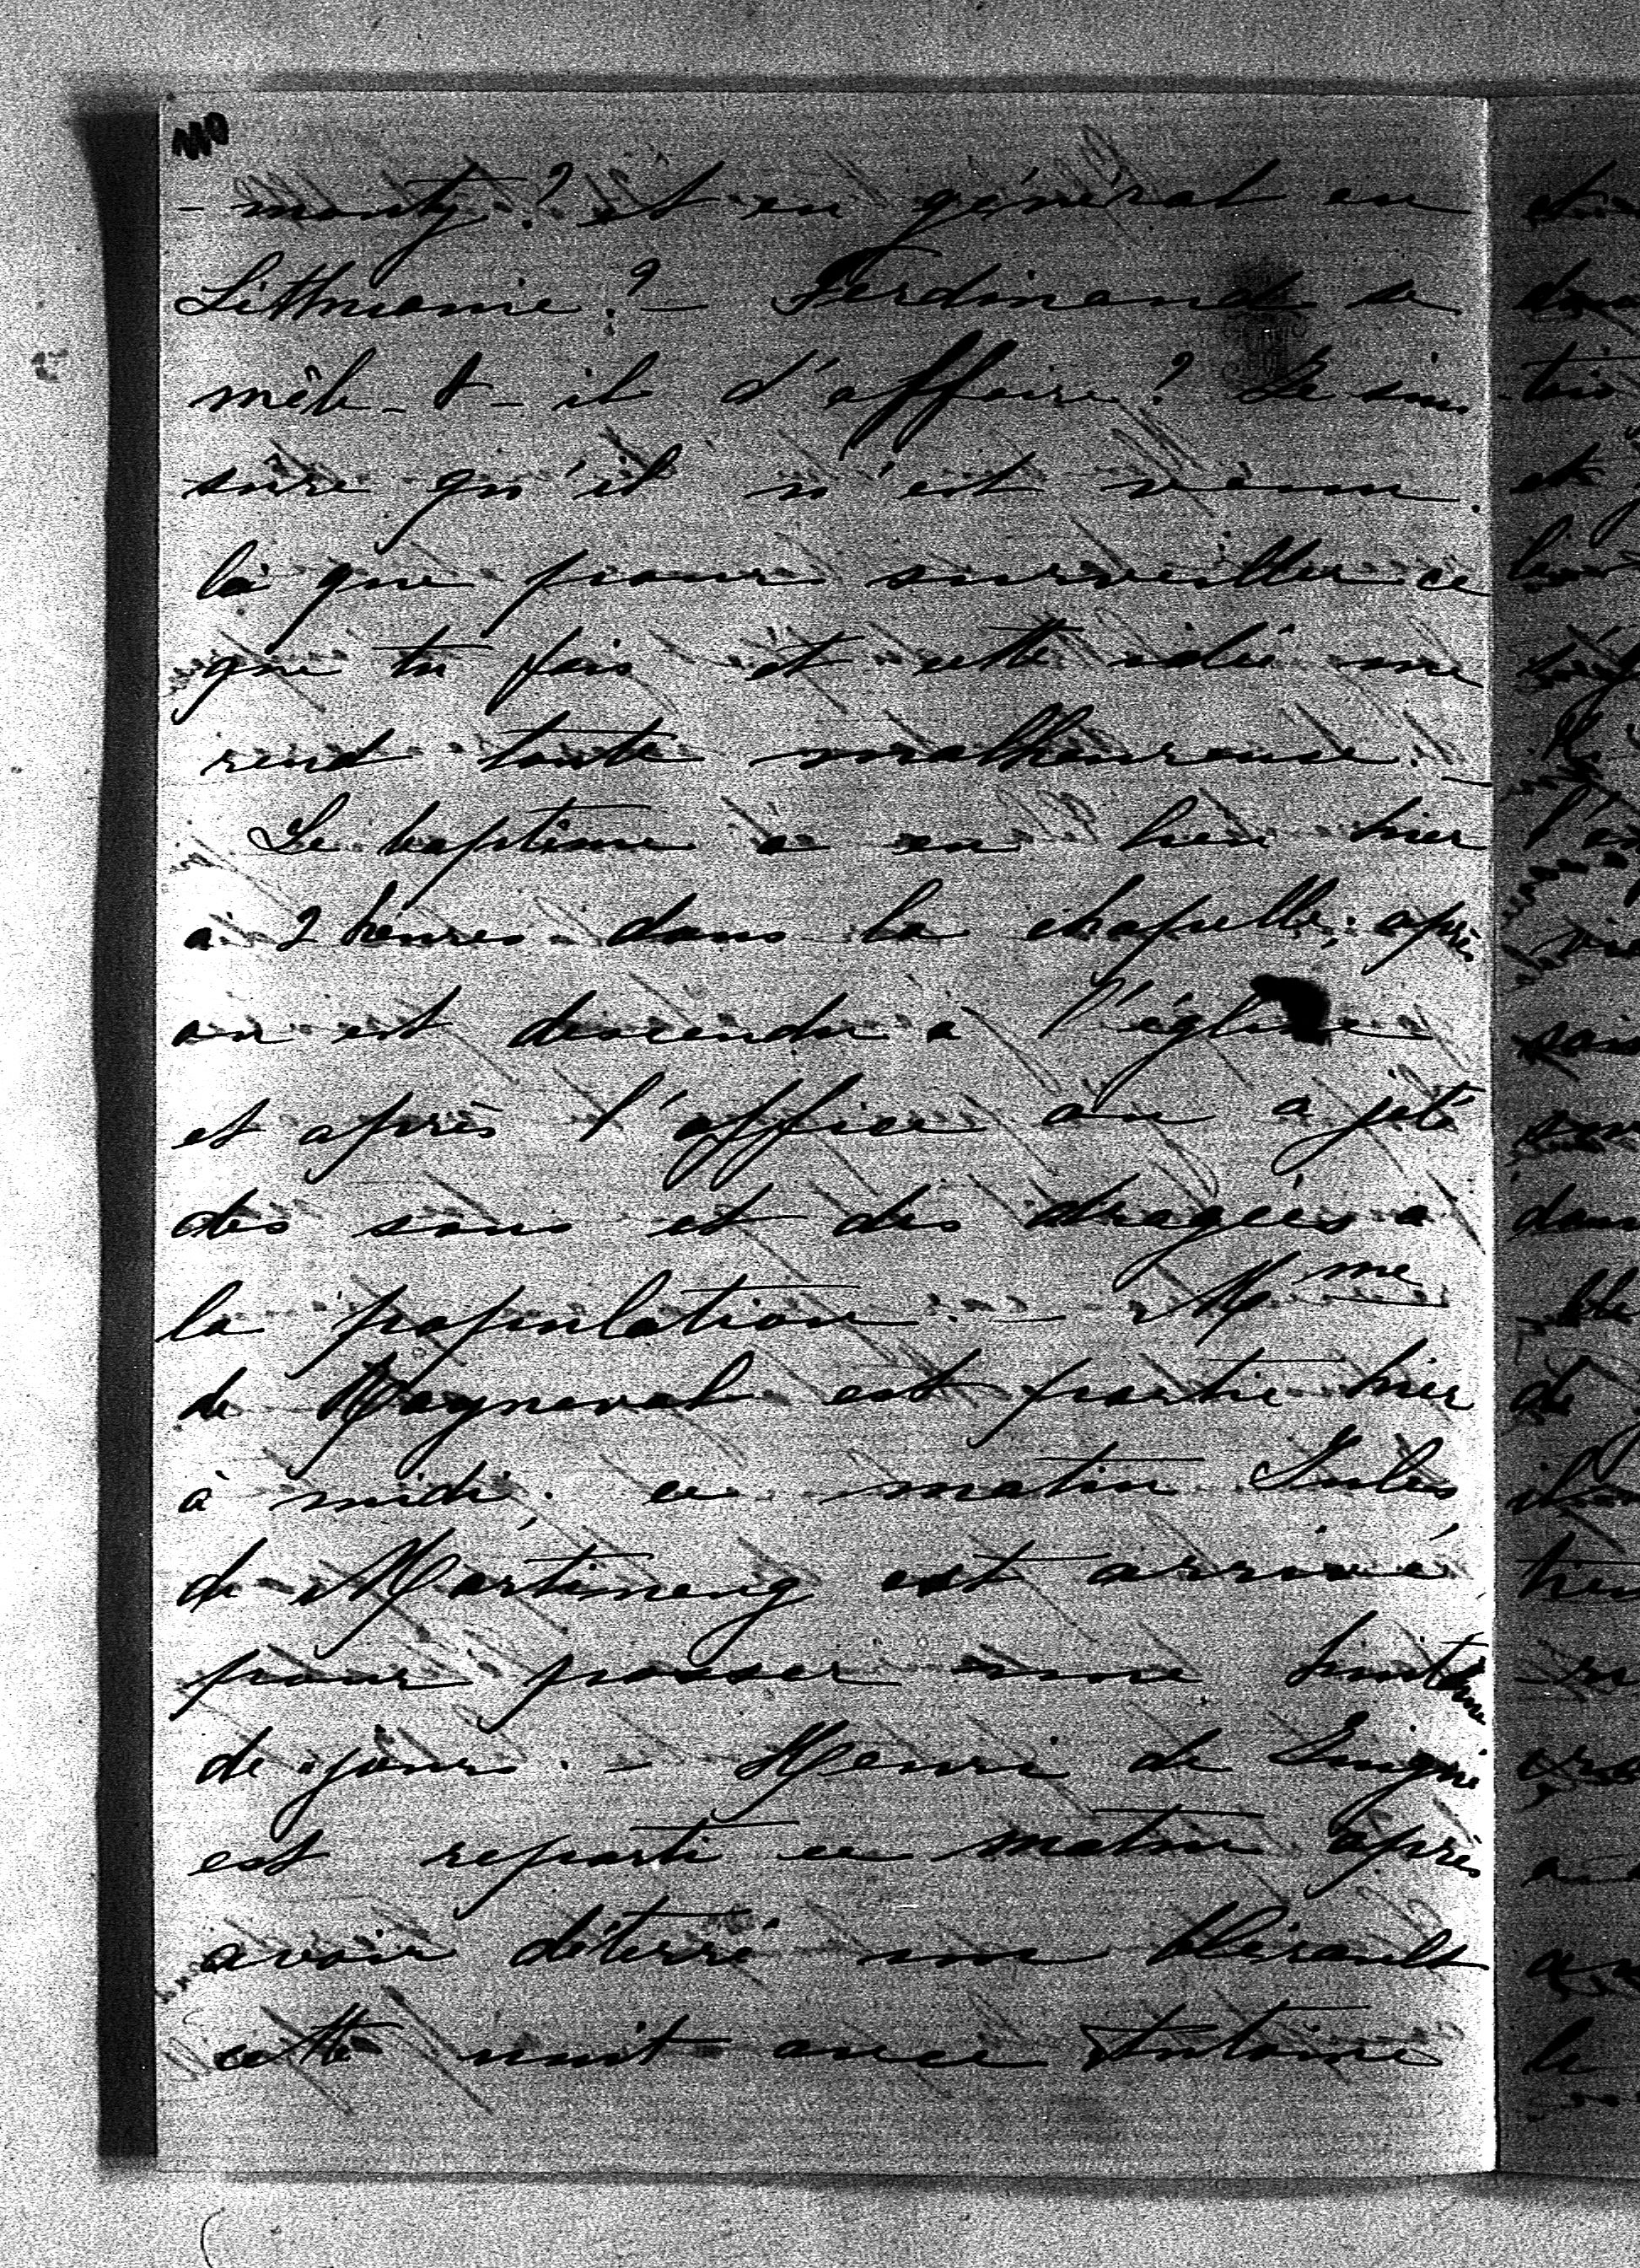 - monty? et en général en
Lithuanie? - Ferdinand se
mêle-t-il d'affaire? Je suis
sûre qu'il n'est venu
là que pour surveiller ce
que tu fais et cette idée me
rend toute malheureuse. -
Le baptême a eu lieu hier
à 2 heures dans la chapelle, après
on est descendu a l'église
et après l'office on a jeté
des sous et des dragées a
la population. - Mme
de Rayneval est partie hier
à midi, ce matin Jules
de Martimprey est arrivé
pour passer une huitaine
de jours. - Henri de
est reparti ce matin après
avoir déterré une
cette nuit avec Antoine